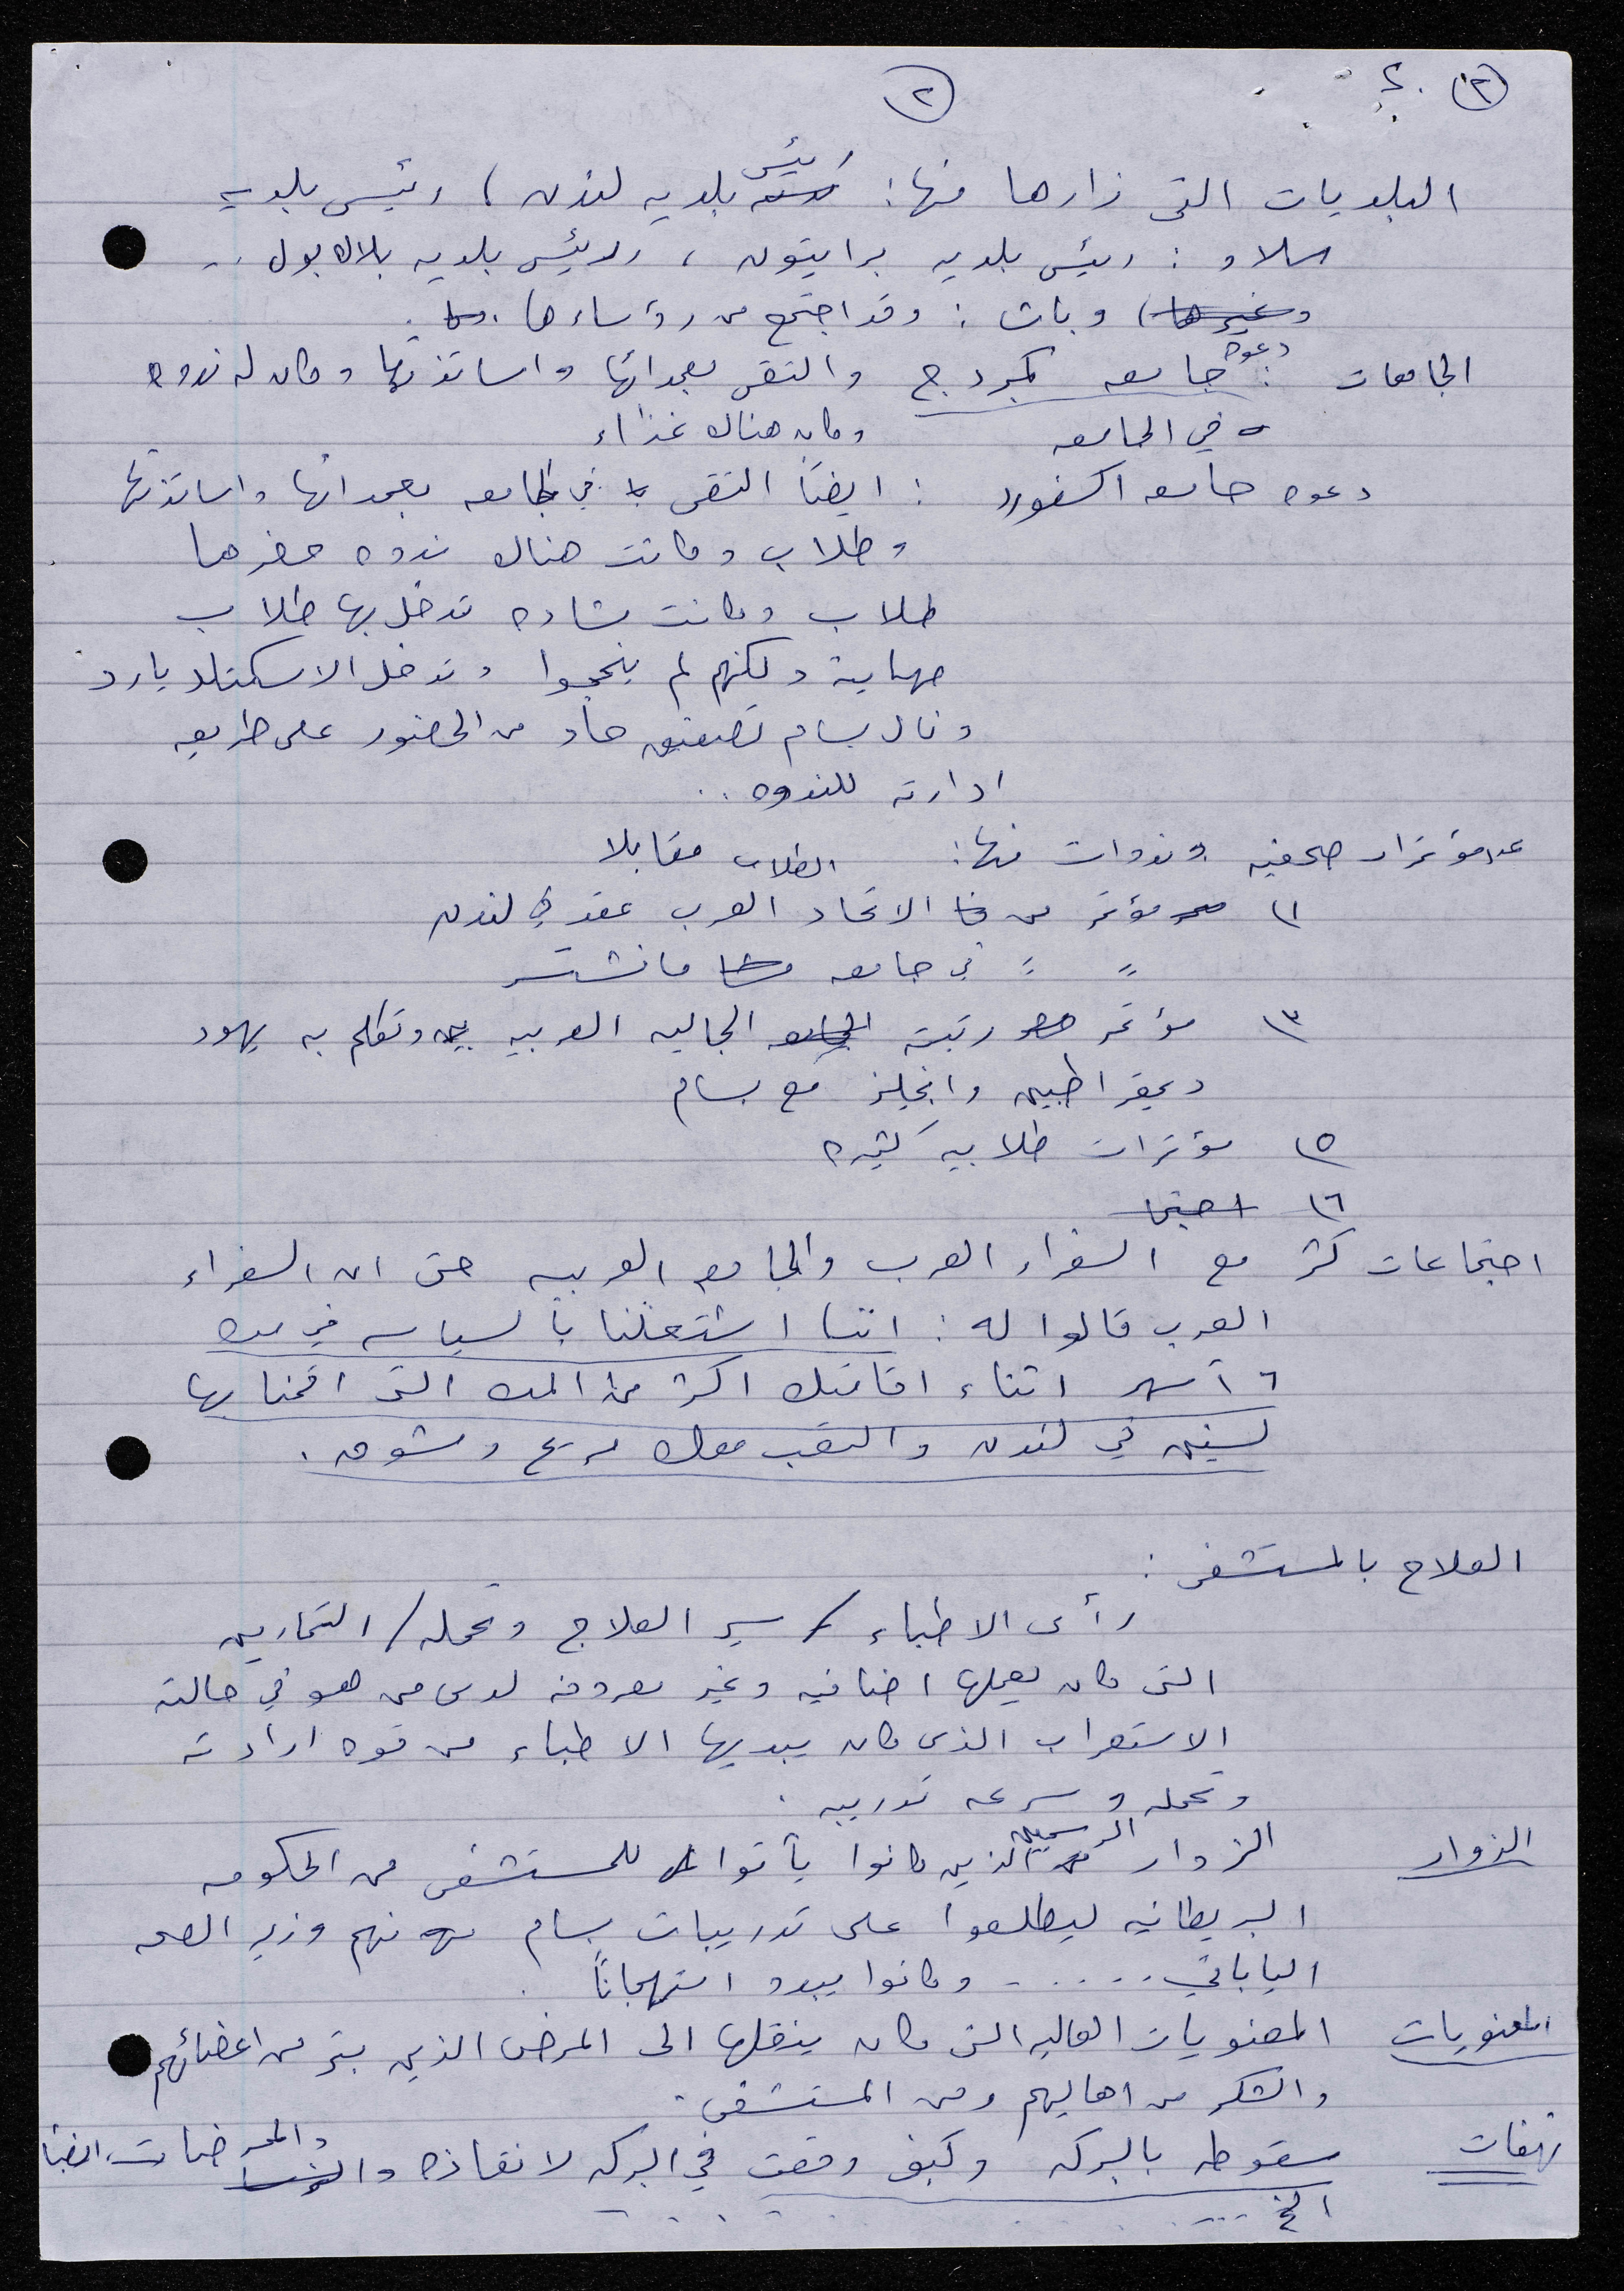 (٢) (٢)
البلديات التي زارها منها: رئيس بلديه لندن ، رئيس بلديه
سلاو : رئيس بلديه برايتون ، ورئيس بلديه بلاك بول ..
وغيرها) وباث : وقد اجتمع من رؤساءها .
الجامعات : دعوه جامعه كمبردج والتقى بعمدائها واساتذتها وكان له ندوه
في الجامعه وكان هناك غذاء
دعوه جامعه اكسفورد : ايضاً التقى في الجامعه بعمدائها واساتذتها
وطلاب وكانت هناك ندوه حضرها
طلاب وكانت مشاده تدخل بها طلاب
صهاينة ولكنهم لم ينجحوا وتدخل الاسكتلاد يارد
ونال بسام تصفيق حاد من الحضور على طريقه
ادارته للندوه ..
عده مؤتمرات صحفيه وندوات منها: الطلاب مقابلا
١) مؤتمر من الاتحاد العرب عقد في لندن
" " في جامعه مانشستر
٣) مؤتمر رتبته الجاليه العربيه وتكلم به يهود
ديمقراطيين وانجليز مع بسام
٥) مؤتمرات طلابيه كثيره
٦) اجتما
اجتماعات كثر مع السفراء العرب والجامعه العربيه حتى ان السفراء
العرب قالوا له : اننا اشتغلنا بالسياسه في مده
٦ أشهر اثناء اقامتك اكثر من المده التي اقمنا بها
لسنين في لندن والتعب معك مريح ومشوق .
العلاج بالمستشفى :
رأى الاطباء / سير العلاج وتحمله / التمارين
التي كان يعملها اضافيه وغير معروفه لدى من هو في حالته
الاستغراب الذى كان يبديها الاطباء من قوه ارادته
وتحمله وسرعه تدريبه .
الزوار الزوار الرسميين الذين كانوا يأتوا للمستشفى من الحكومه
البريطانيه ليطلعوا على تدريبات بسام منهم وزير الصحه
الياباني ..... وكانوا يبدو استهجاناً .
المعنويات المعنويات العاليه التي كان ينقلها الى المرضى الذين بتر من اعضائهم
والشكر من اهاليهم ومن المستشفى .
نهفات سقوطه بالبركه وكيف وقعت في البركه لانقاذه والممرضات ايضا
الخ .....